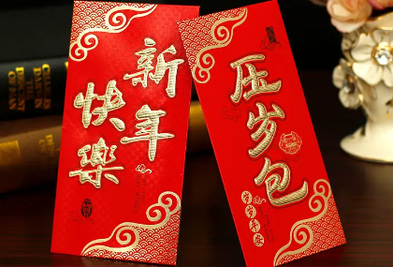 新年
快樂
压岁包